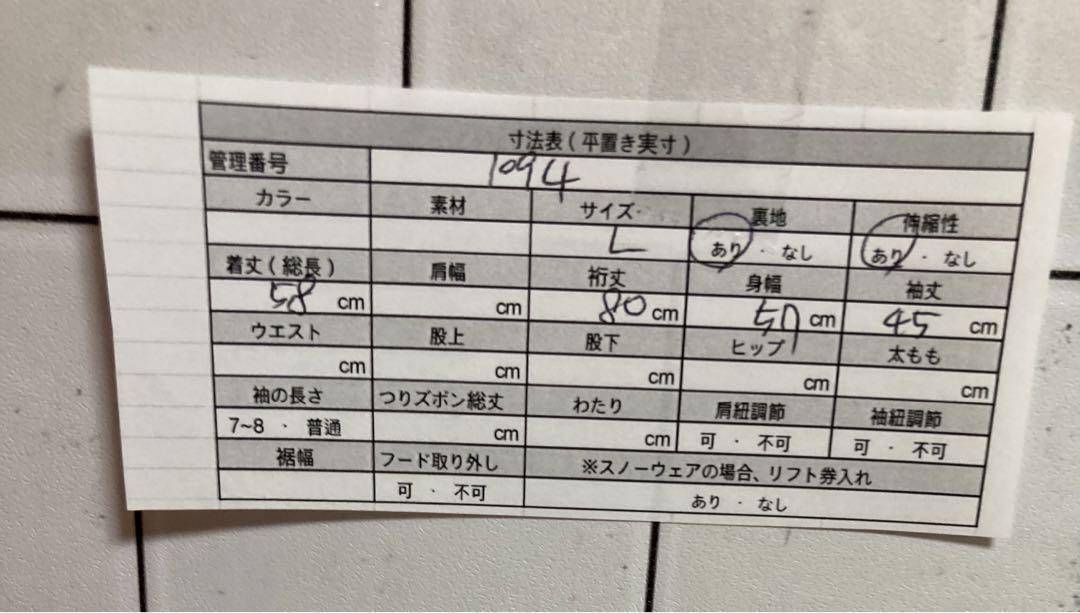 寸法表(平置き実寸)
管理番号 1094
カラー 素材 サイズ 裏地 伸縮性
L あり・なし あり・なし
着丈(総長) 肩幅 裄丈 身幅 袖丈
58 cm cm 80 cm cm 45 cm
ウエスト 股上 股下 ヒップ 太もも
cm cm cm cm cm
袖の長さ つりズボン総丈 わたり 肩紐調節 袖紐調節
7~8・普通 cm cm 可・不可 可・不可
裾幅 フード取り外し ※スノーウェアの場合、リフト券入れ
可・不可 あり・なし